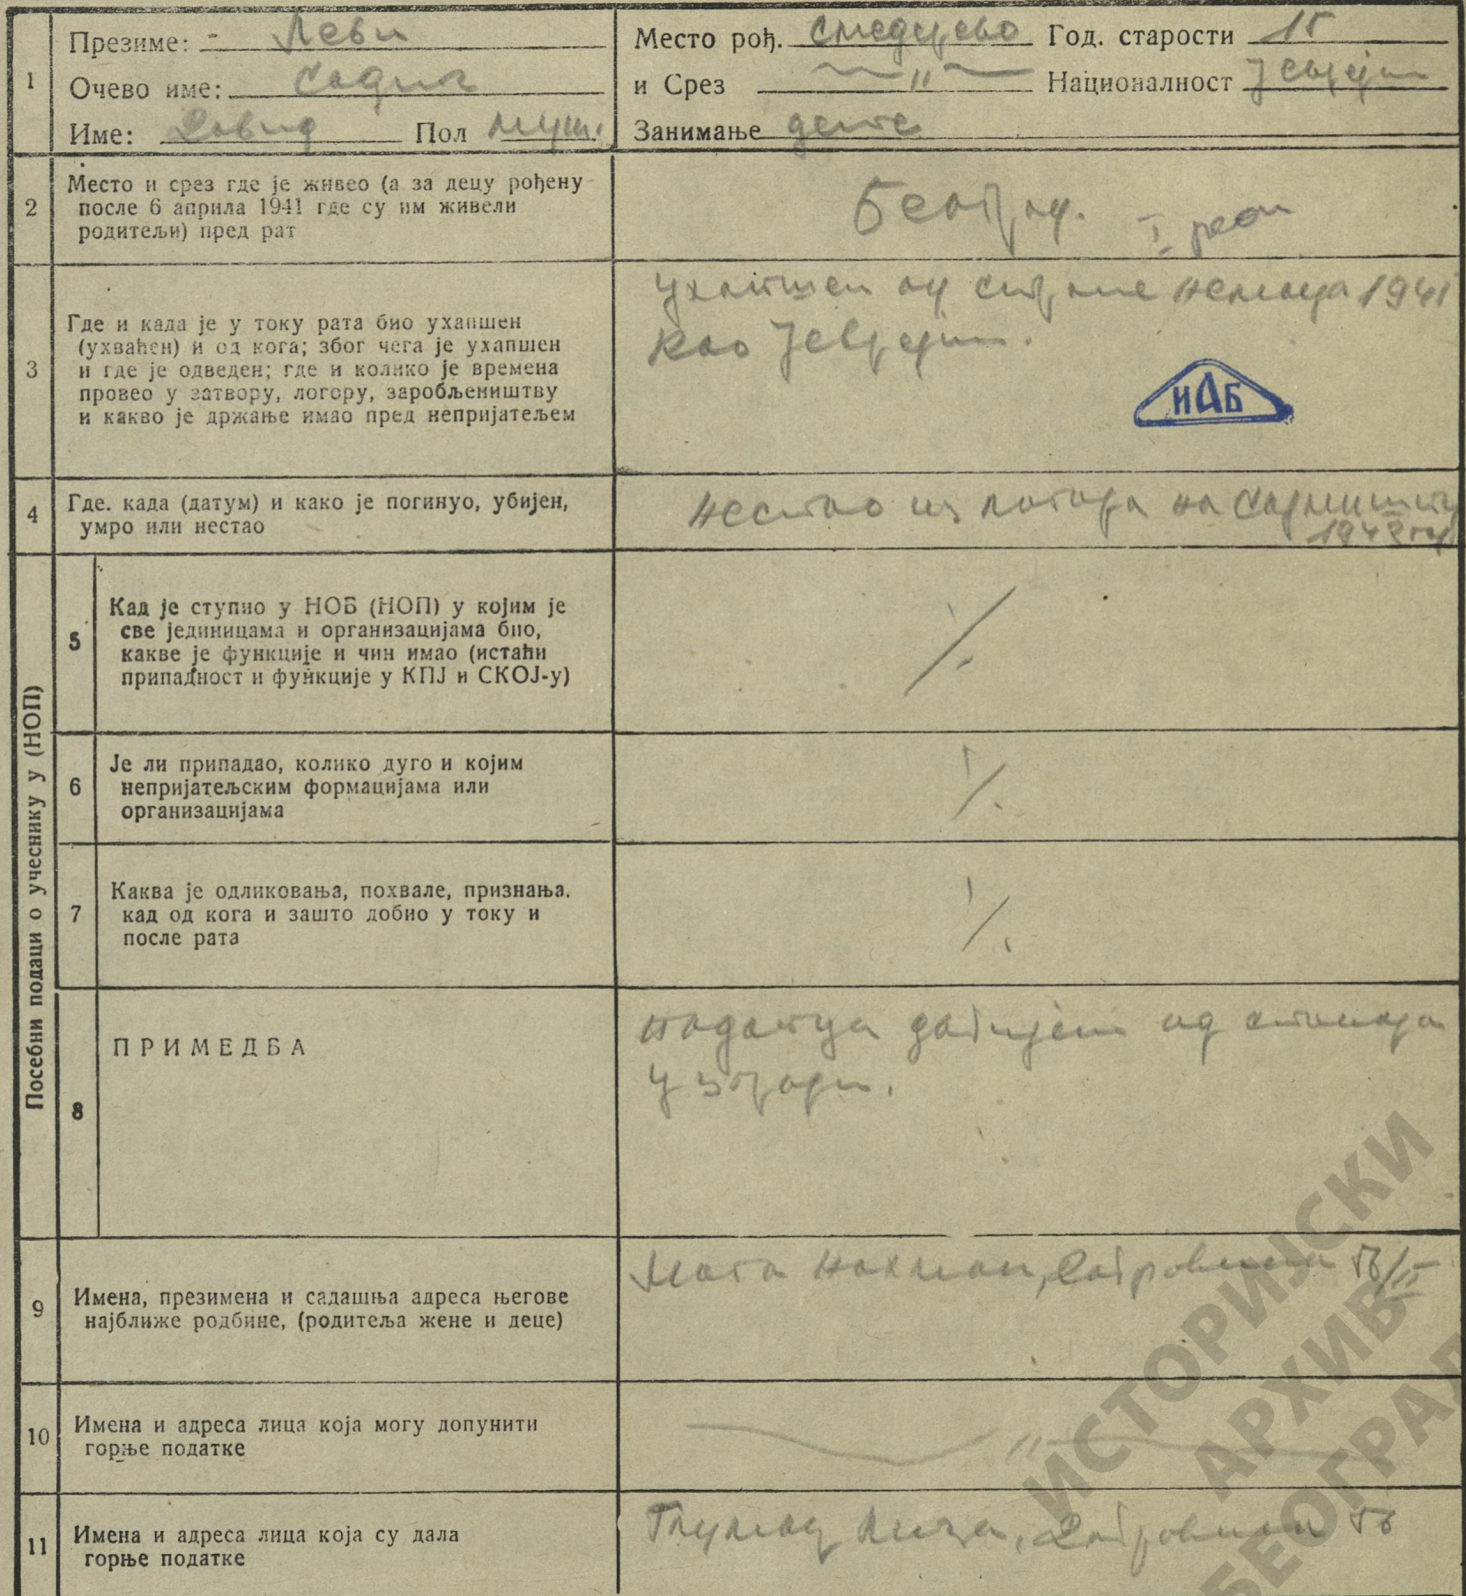 1
Презиме: - Леви
Очево име: Садик
Име: Давид Пол муш.
Место рођ. Смедерево Год. старости 15
и Срез — " — Националност Јеврејин
Занимање дете
2
Место и срез где је живео (а за децу рођену
после 6 априла 1941 где су им живели
родитељи) пред рат
Београд.
I реон
3
Где и када је у току рата био ухапшен
(ухваћен) и од кога; због чега је ухапшен
и где је одведен; где и колико је времена
провео у затвору, логору, заробљеништву
и какво је држање имао пред непријатељем
ухапшен од стране Немаца 1941
као Јеврејин.
ИАБ
4
Где. када (датум) и како је погинуо, убијен,
умро или нестао
нестао из логора на Сајмишту
1942 год
Посебни подаци о учеснику у (НОП)
5
Кад је ступио у НОБ (НОП) у којим је
све јединицама и организацијама био,
какве је функције и чин имао (истаћи
припадност и функције у КПЈ и СКОЈ-у)
6
Је ли припадао, колико дуго и којим
непријатељским формацијама или
организацијама
7
Каква је одликовања, похвале, признања.
кад од кога и зашто добио у току и
после рата
8
ПРИМЕДБА
податци добијени од станара
у згради.
9
Имена, презимена и садашња адреса његове
најближе родбине, (родитеља жене и деце)
Нахман, 56/II
10
Имена и адреса лица која могу допунити
горње податке
— " —
11
Имена и адреса лица која су дала
горње податке
56
ИСТОРИЈСКИ
АРХИВ
БЕОГРАД